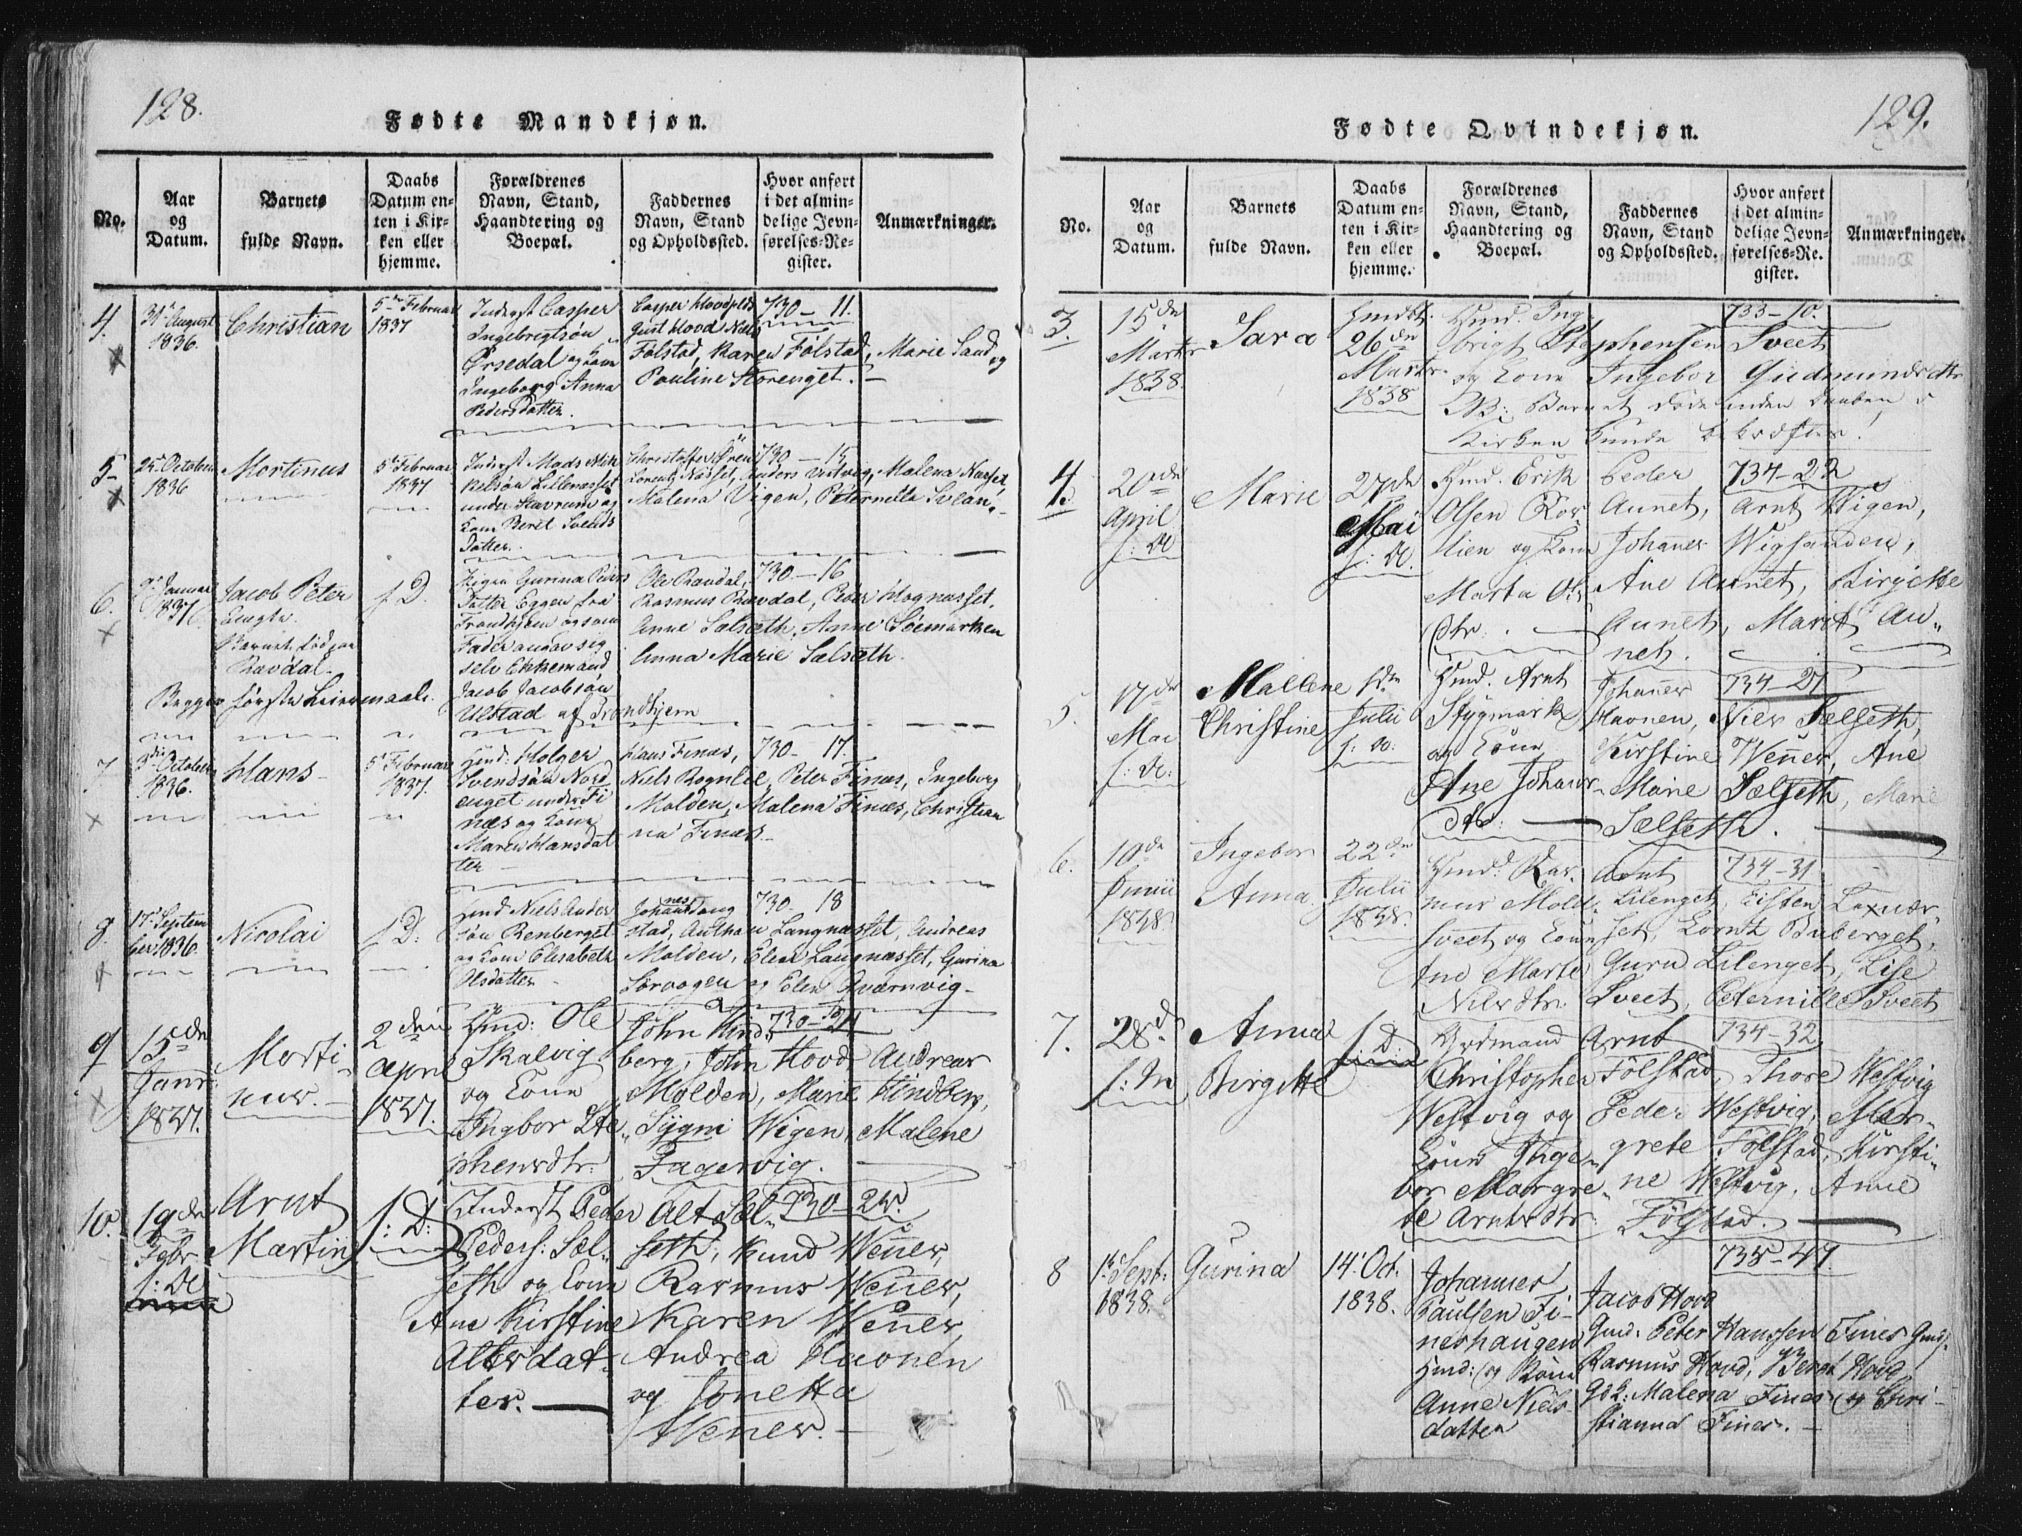 128.
Fødte Mandkjøn.
No.
Aar
og
Datum.
Barnets
fulde Navn.
Daabs
Datum en-
ten i Kir-
ken eller
hjemme.
Forældrenes
Navn, Stand,
Haandtering og
Boepæl.
Faddernes
Navn, Stand
og Opholdssted.
Hvor anført
i det almin-
delige Jevn-
førelses-Re-
gister.
Anmærkninger.
4.
31te August
1836.
Christian
5te Februar
1837
Inderst Casper
Ingebrigtsøn
Ørsedal og Kone
Ingeborg Anna
Peders Datter.
Casper Hovd
Gust Hovd Niels
Følstad, Karen Følstad, Marie Sand og
Pauline Storenget.
730 — 11.
5
25 October
1836
Mortinus
5te Februar
1837
Inderst Mads Mik
kelsøn Lillenæsset
under Stavrum og
Kone Beret Svends
Datter.
Christoffer
Lorentz Næsset, Anders Vestvig, Malena Næsset,
Malena Vigen, Peternella Svean.
730 — 15
6.
Januar
1837
Jacob Peter
Barnet født paa
Ravdal.
f D.
Pigen Gurina Peders
Datter Eggen fra
Trondhjem og som
Fader angav sig
selv Ekkemand
Jacob Jacobsøn
Ulstad af Trondhjem
Begges første Leiermaal.
Ole Ravdal,
Rasmus Ravdal, Peder Hognæsset,
Anne Sælsæth, Anne Søemarken
Anna Marie Sælsæth.
730 — 16
7
3die October
1836.
Hans
5te Februar
1837.
Hmd: Holger
Svendsøn Nord
enget under Fi
næs og Kone
Maren Hansdat
ter
Hans Finæs,
Niels Rognlie, Peter Finæs, Ingeborg
Molden, Malena Finæs, Christian
na Finæs.
730 — 17.
8.
17de Septem
ber 1836.
Nicolai
f D:
Hmd Niels Anders
søn Renberget
og Kone Elisabeth
Olsdatter
Johannes Aang
stad, Anthon Langnæsset, Andreas
Molden, Elen Langnæsset, Gurina
Sørvogen og Elen Qværnvig.
730 — 18
9
15de
Janr:
1837.
Morti-
nus.
2den
April
1837.
Hmd: Ole
Skalvig
og Kone
Ingbor Ste-
phensdtr:
John Hind-
berg, John Hovd Andreas
Molden, Marie Hindberg,
Sygni Wigen, Malene
Fagervig.
10.
19de
Febr.
f: A
Arnt
Martin
f: D:
Inderst Peder
Peders: Sæl-
seth og Kone
Ane Kirstine
Altsdat-
ter.
Alt Sæl-
seth, Knud Wener,
Rasmus Wener,
Karen Wener,
Andrea Havnen
og Jonetta
Wener.
730 — 25.
129.
Fødte Qvindekjøn.
No.
Aar
og
Datum.
Barnets
fulde Navn.
Daabs
Datum en-
ten i Kir-
ken eller
hjemme.
Forældrenes
Navn, Stand,
Haandtering og
Boepæl.
Faddernes
Navn, Stand
og Opholdssted.
Hvor anført
i det almin-
delige Jevn-
førelses-Re-
gister.
Anmærkninger.
3.
15de
Marts
1838.
Sara
Hmdbt.
26de
Marts
1838
Hmd. Ing-
brigt Stephensen Sveet
og Kone Ingebor Gudmundsdtr
NB: Barnet døde inden Daaben i
Kirken kunde bekræftes!
733 — 10.
4.
20de
April
f: A
Marie
27de
Mai
f: A.
Hmd. Erik
Olsen Rø-
lien og Kone
Marta Ols
Dtr.
Peder
Aunet, Arnt Wigen,
Johanes Wigsanden,
Ane Aunet, Birgitte
Aunet, Marit Au-
net.
734 — 22
5.
17de
Mai
f: A:
Mallene
Christine
1ste
Julii
f: A:
Hmd. Arnt
Stygmark
og Kone
Ane Johans-
dtr:
Johanes
Havnen, Niels Sælseth,
Kirstine Wener, Ane
Marie Sælseth, Marie
Sælseth.
734 — 27
6.
10de
Junii
1838
Ingebor
Anna
22de
Julii
1838.
Hmd. Ras-
mus Mold-
sveet og Kone
Ane Marte
Nielsdtr:
Arnt
Lilenget, Eisten Laxnæs-
set, Lornts Buberget,
Guru Lilenget, Lise
Sveet, Peternille Sveet
734 — 31
7.
28de
f: M
Anna
Birgitte
f: D:
Ordmand
Christopher
Westvig og
Kone Inge-
bor Margre-
te Arntsdtr:
Arnt
Følstad, Thore Westvig
Peder Westvig, Mar-
grete Følstad, Kirsti-
ne Westvig, Anne
Følstad.
734 — 32
8
1ste Sept.
1838.
Gurina
14. Oct.
1838.
Johannes
Paulsen Fi-
neshaugen
Hmd: og Kone
Anne Niels-
datter
Jacob Hovd
Gmd. Peter Hanssen Fines Gmd,
Rasmus Hovd, Beret Hovd
Gdk: Malena Fines og Chri-
stianna Fines.
735 — 47